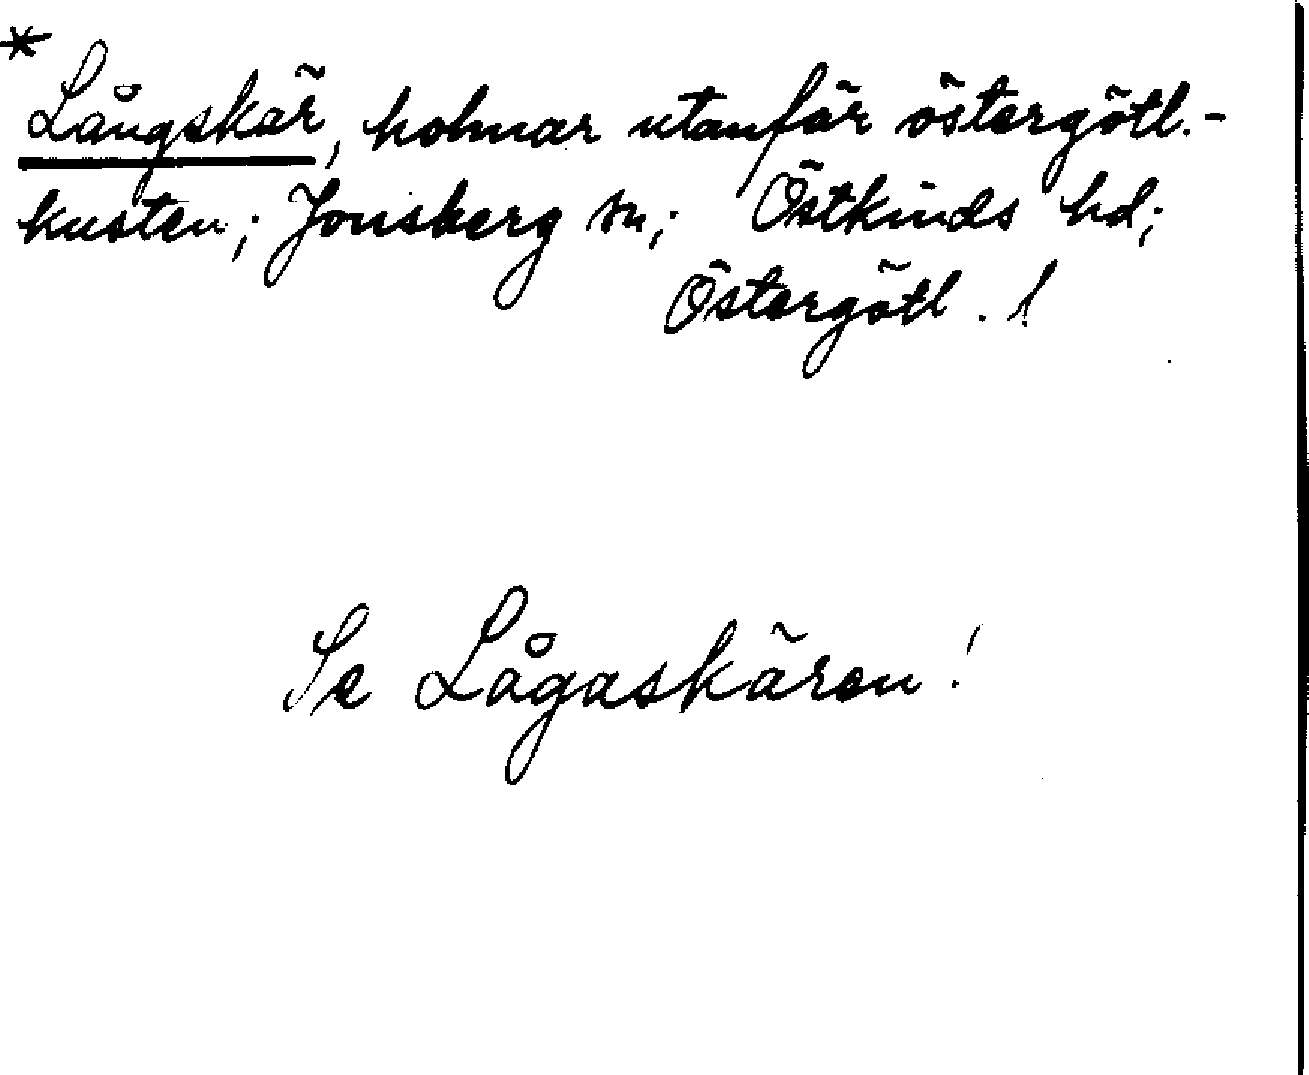 * Långskär, holmar utanför östergötl.-
kusten; Jonsberg sn; Östkinds hd;
Östergötl. !
Se Lågaskären!